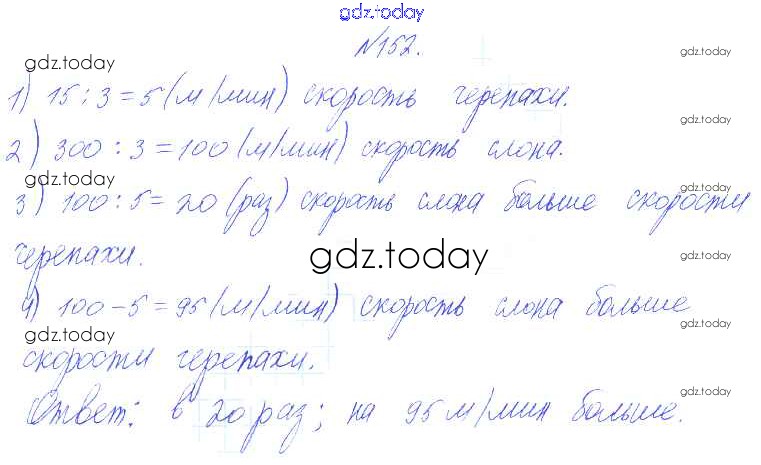 gdz.today
№152.
gdz.today
gdz.today
1) 15 : 3 = 5 (м/мин) скорость черепахи.
gdz.today
2) 300 : 3 = 100 (м/мин) скорость слона.
gdz.today
gdz.today
3) 100 : 5 = 20 (раз) скорость слона больше скорости
черепахи.
gdz.today
gdz.today
4) 100 - 5 = 95 (м/мин) скорость слона больше
gdz.today
gdz.today
скорости черепахи.
gdz.today
Ответ: в 20 раз; на 95 м/мин больше.